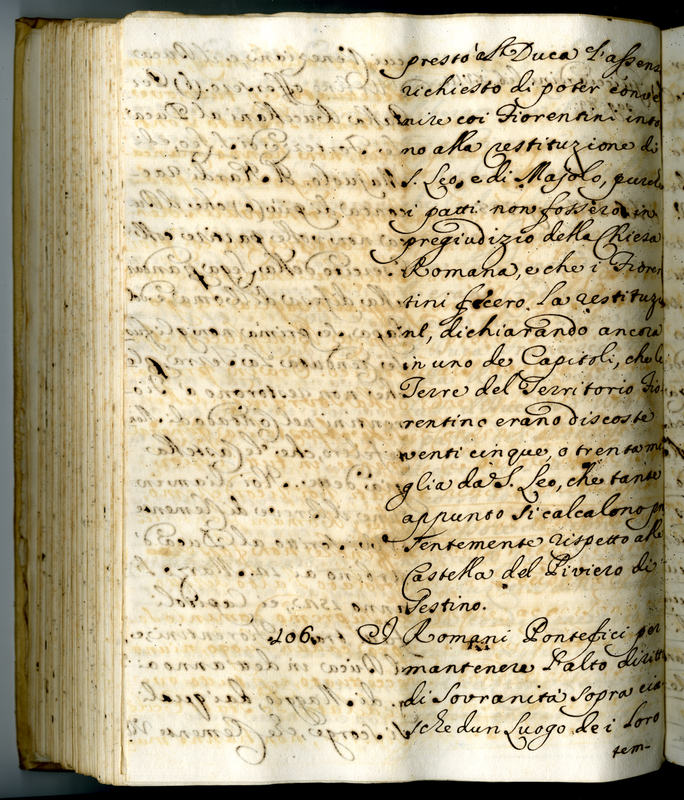 prestò al Duca l'assens
richiesto di poter conve
nire coi Fiorentini into
no alla restituzione di
S. Leo, e di Majolo, purch
i patti non fossero in
pregiudizio della Chiesa
Romana, e che i Fioren
tini fecero la restituzi
ne, dichiarando ancora
in uno de Capitoli, che le
Terre del Territorio Fio
rentino erano discoste
venti cinque, o trenta mi
glia da S. Leo, che tante
appunto si calcalono pre
sentemente rispetto alle
Castella del Piviero di
Sestino.
106. I Romani Pontefici per
mantenere l'alto diritto
di Sovranità sopra cia
schedun Luogo dei Loro
tem-